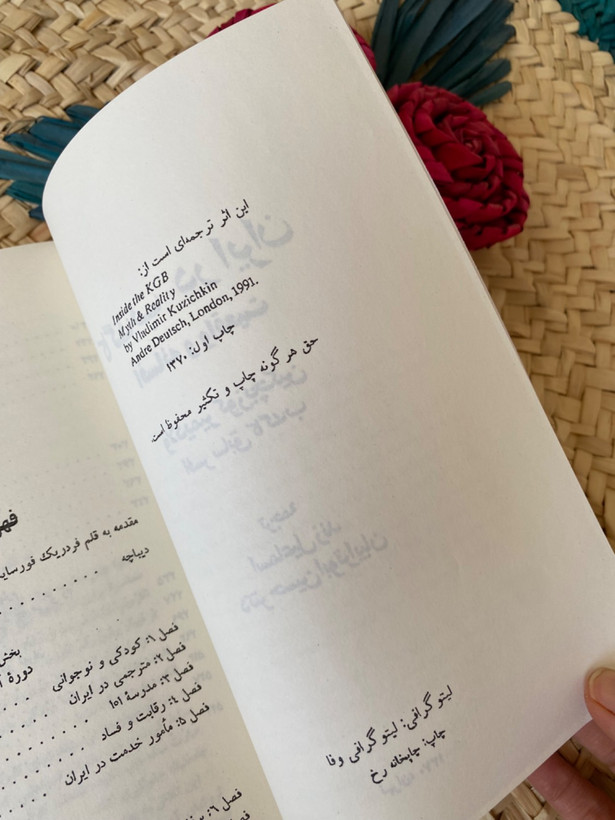 این اثر ترجمه‌ای است از:
Inside the KGB
Myth & Reality
by Vladimir Kuzichkin
Andre Deutsch, London, 1991.
چاپ اول: ۱۳۷۰
حق هر گونه چاپ و تکثیر محفوظ است.
لیتوگرافی: لیتوگرافی وفا
چاپ: چاپخانه رخ
مقدمه به قلم فردریک
دیباچه
بخش
دورهٔ
فصل ۱: کودکی و نوجوانی
فصل ۲: مترجمی در ایران
فصل ۳: مدرسهٔ ۱۰۱
فصل ۴: رقابت و فساد
فصل ۵: مأمور خدمت در ایران
فصل ۶: